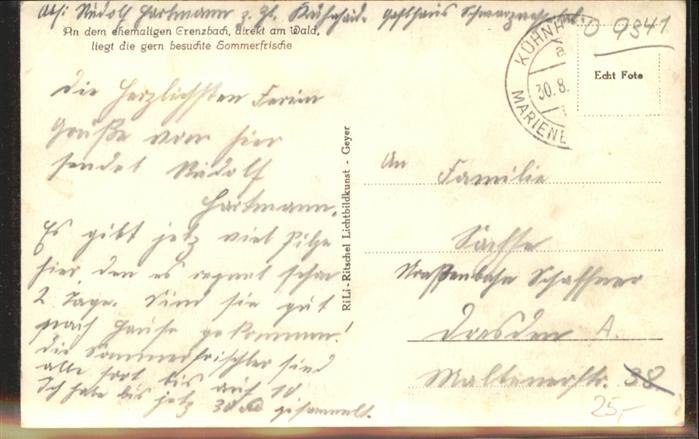 Abs: Rudolf Hartmann z. Zt. Kühnhaide Gasthaus Schwarzwassertal.
An dem ehemaligen Grenzbach, direkt am Wald,
liegt die gern besuchte Sommerfrische
O 9341
KÜHNH
30.8.
MARIENB
Echt Foto
Die Herzlichsten Ferien
Grüße von hier
sendet Rudolf
Hartmann.
Es gibt jetz viel Pilze
hier den es regnet schon
2 Tage. Sind sie gut
nach Hause gekommen!
Die Sommerfrischler sind
alle fort bis auf 10
Ich habe bis jetz 30 gesammelt.
RiLi-Ritschel Lichtbildkunst - Geyer
An
Familie
Sachse
Straßenbahn Schaffner
Dresden A.
Malterserstr. 38
25,-